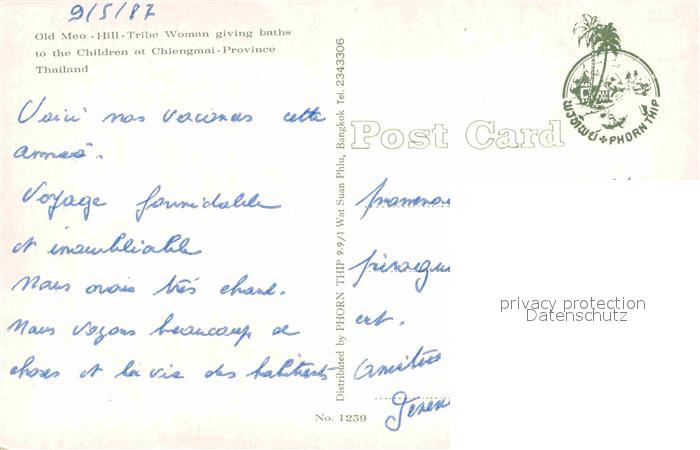 9/5/87
Old Meo - Hill - Tribe Woman giving baths
to the Children at Chiengmai - Province
Thailand
Voici nos vacances cette
année.
Voyage formidable
et inoubliable
Nous avons très chaud.
Nous voyons beaucoup de
choses et la vie des habitants
Distributed by PHORN THIP 9-9/1 Wat Suan Phlu, Bangkok Tel. 2343306
No. 1259
Post Card
พรทิพย์ PHORN THIP
est.
Amitiés
privacy protection
Datenschutz